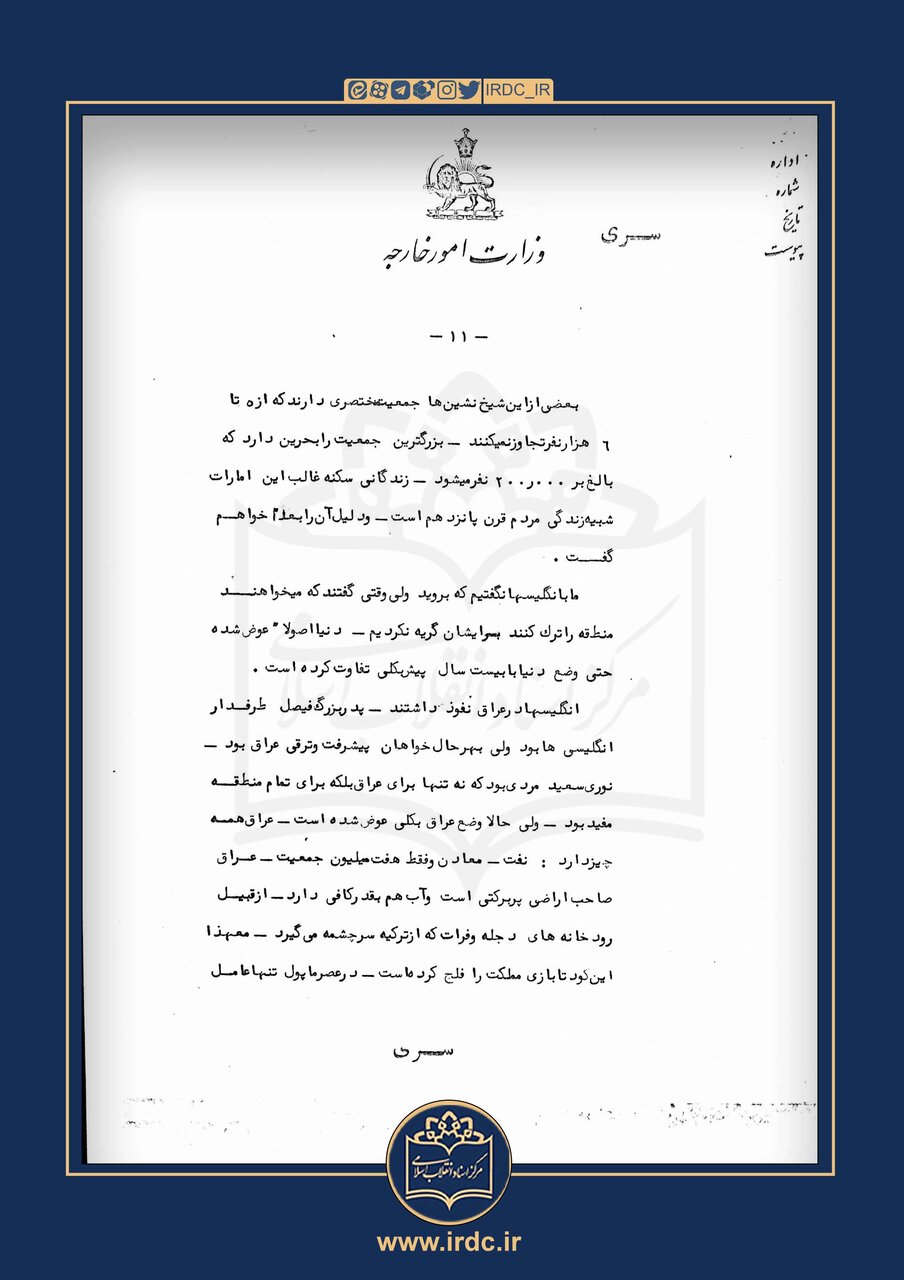 IRDC_IR
اداره
شماره
تاریخ
پیوست
سری
وزارت امور خارجه
- ۱۱ -
بعضی از این شیخ نشین ها جمعیت مختصری دارند که از ۵ تا
۶ هزار نفر تجاوز نمیکنند – بزرگترین جمعیت را بحرین دارد که
بالغ بر ۲۰۰ر۰۰۰ نفر میشود – زندگانی سکنه غالب این امارات
شبیه زندگی مردم قرن پانزدهم است – و دلیل آن را بعداً خواهم
گفت .
ما بانگلیسها نگفتیم که بروید ولی وقتی گفتند که میخواهند
منطقه را ترک کنند برایشان گریه نکردیم – دنیا اصولا" عوض شده
حتی وضع دنیا با بیست سال پیش بکلی تفاوت کرده است .
انگلیسها در عراق نفوذ داشتند – پدر بزرگ فیصل طرفدار
انگلیسی ها بود ولی بهر حال خواهان پیشرفت و ترقی عراق بود –
نوری سعید مردی بود که نه تنها برای عراق بلکه برای تمام منطقه
مفید بود – ولی حالا وضع عراق بکلی عوض شده است – عراق همه
چیز دارد : نفت – معادن و فقط هفت میلیون جمعیت – عراق
صاحب اراضی پر برکتی است و آب هم بقدر کافی دارد – از قبیل
رودخانه های دجله و فرات که از ترکیه سرچشمه می گیرد – معهذا
این کودتا بازی مملکت را فلج کرده است – در عصر ما پول تنها عامل
سری
مرکز اسناد انقلاب اسلامی
مرکز اسناد انقلاب اسلامی
www.irdc.ir